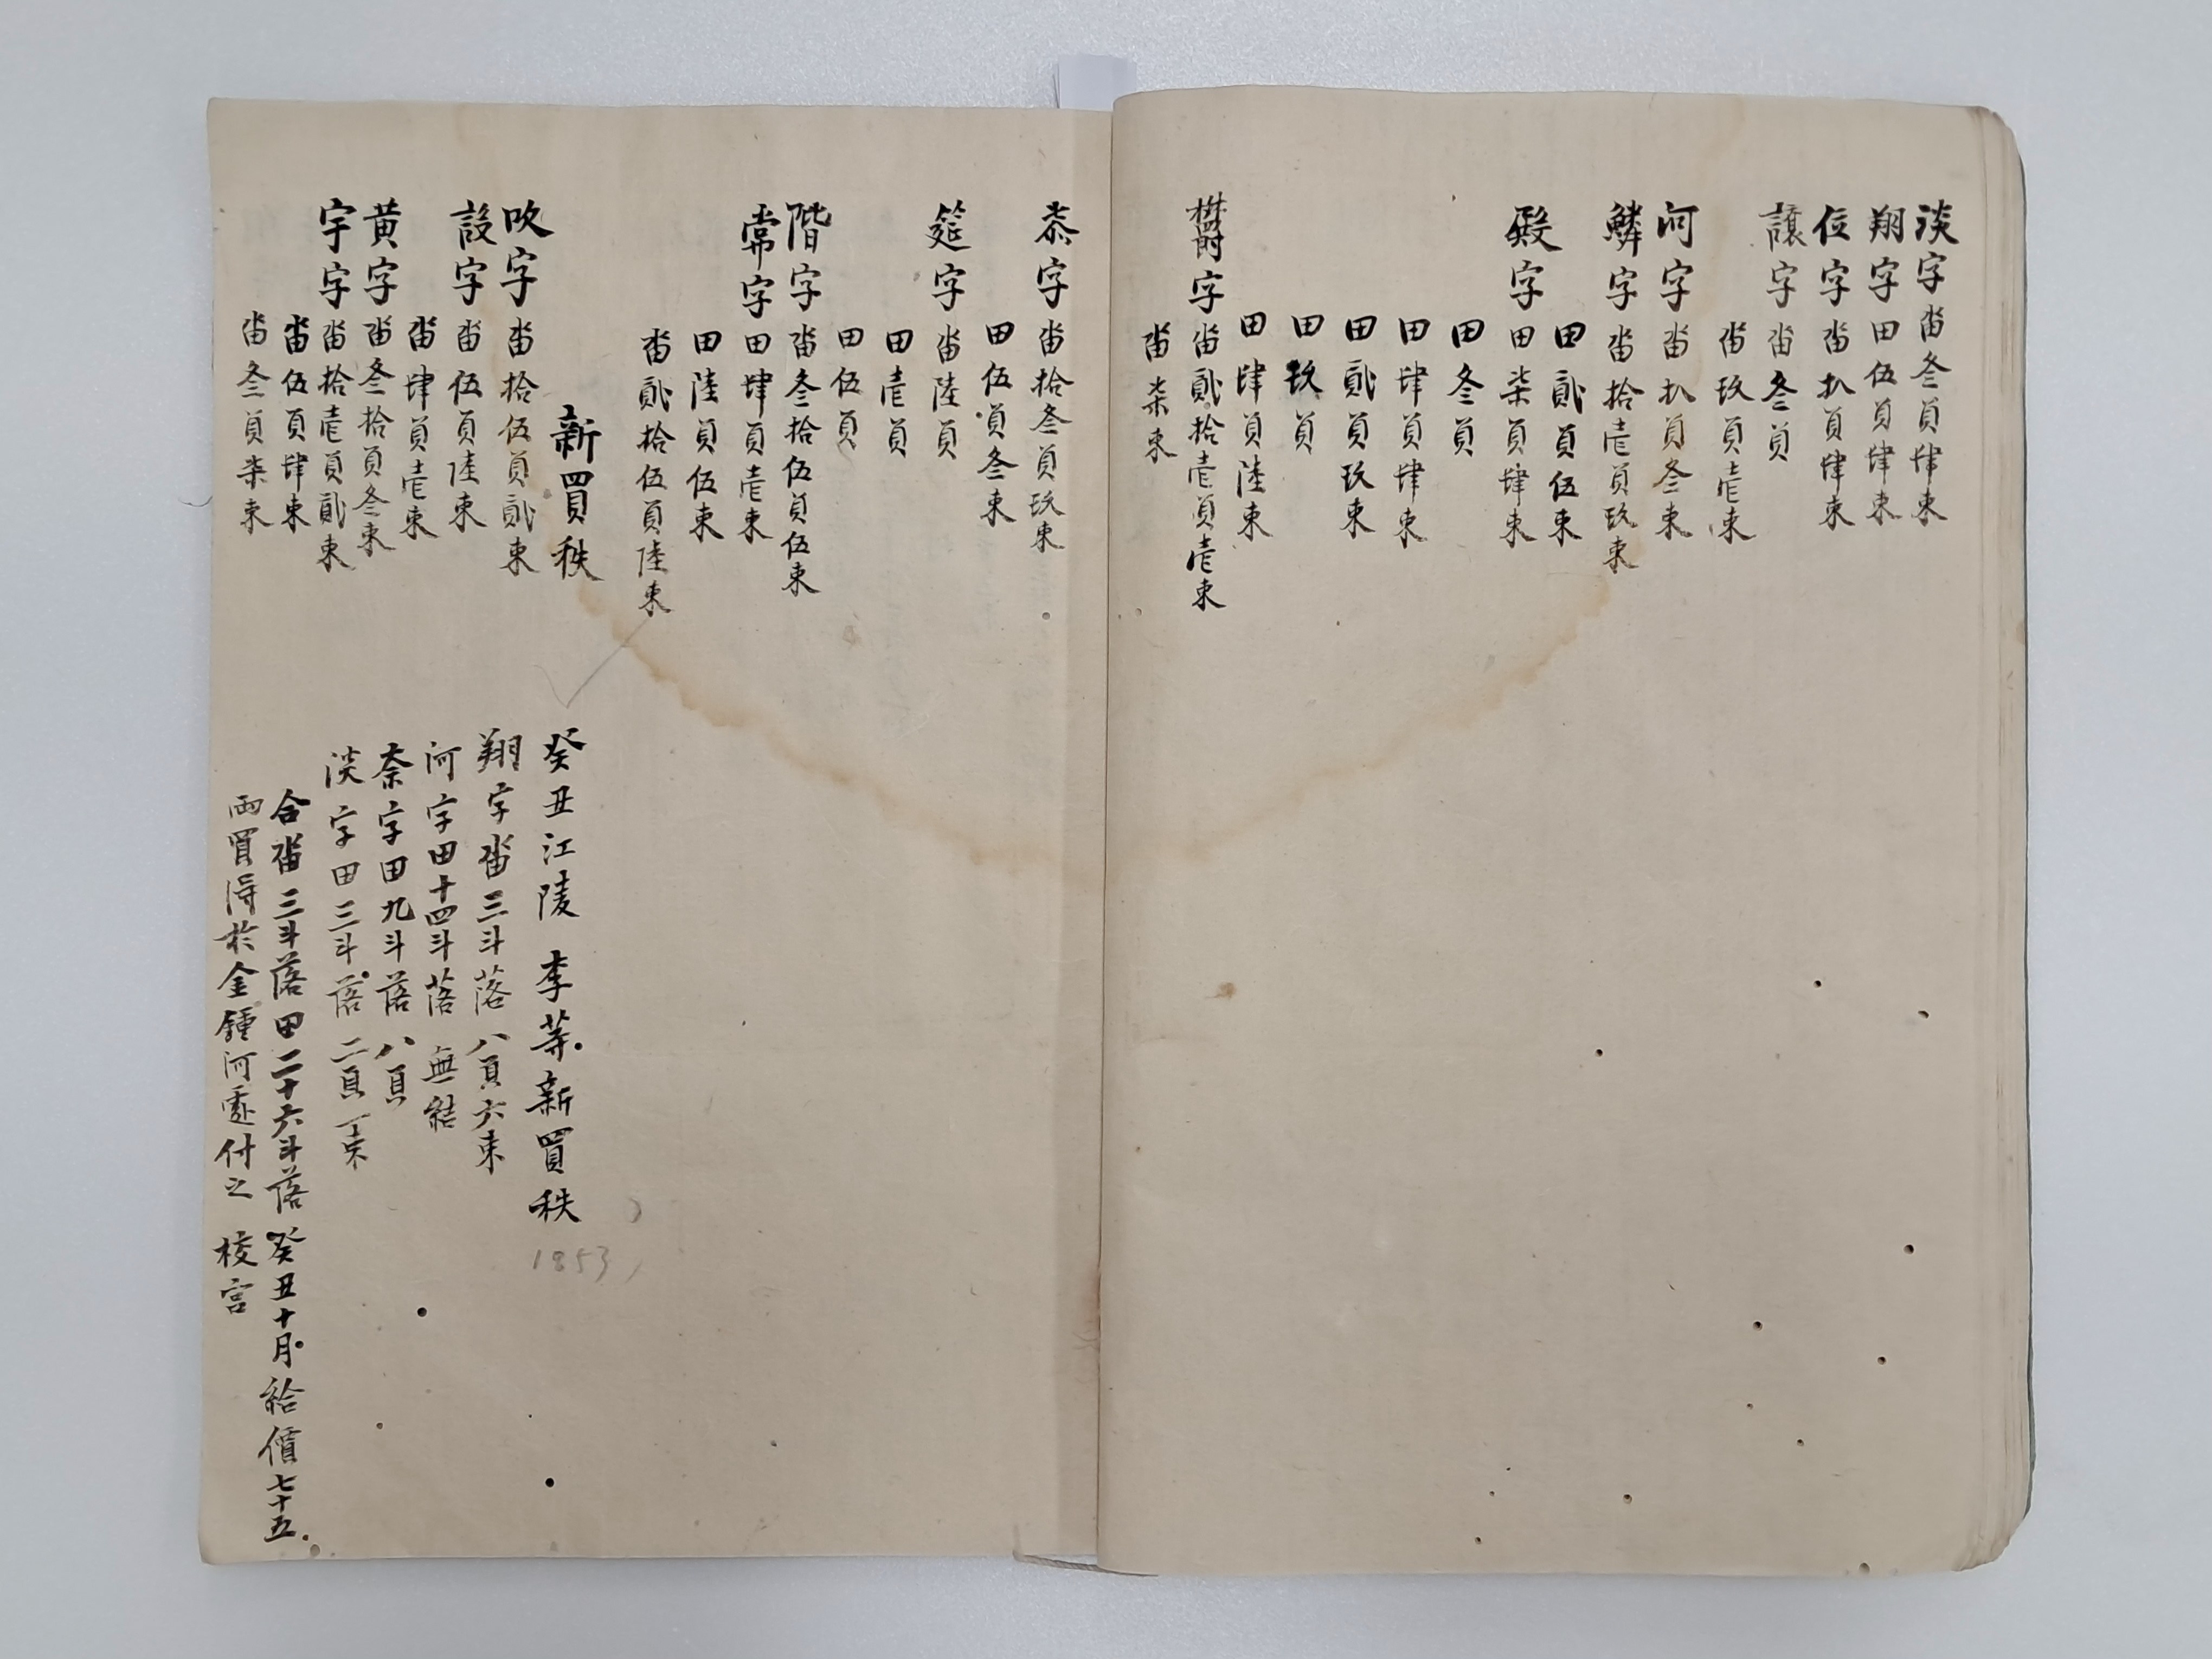 淡字畓叄負肆束
翔字田伍負肆束
位字畓扒負肆束
讓字畓叄負
畓玖負壱束
河字畓扒負叄束
鱗字畓拾壱負玖束
田貳負伍束
殿字田柒負肆束
田叄負
田肆負肆束
田貳負玖束
田玖負
田肆負陸束
欝字畓貳拾壱負壱束
畓柒束
柰字畓拾叄負玖束
田伍負叄束
筵字畓陸負
田壱負
田伍負
階字畓叄拾伍負伍束
常字田肆負壱束
田陸負伍束
畓貳拾伍負陸束
新買秩
吹字畓拾伍負貳束
設字畓伍負陸束
畓肆負壱束
黃字畓叄拾負叄束
宇字畓拾壱負貳束
畓伍負肆束
畓叄負柒束
癸丑江陵 李等新買秩
1853
翔字畓三斗落 八負六束
河字田十四斗落 無結
柰字田九斗落 八負
淡字田三斗落 二負一束
合畓三斗落田二十六斗落 癸丑十月 給價七十五
兩買得於金鍾河處付之 校宮